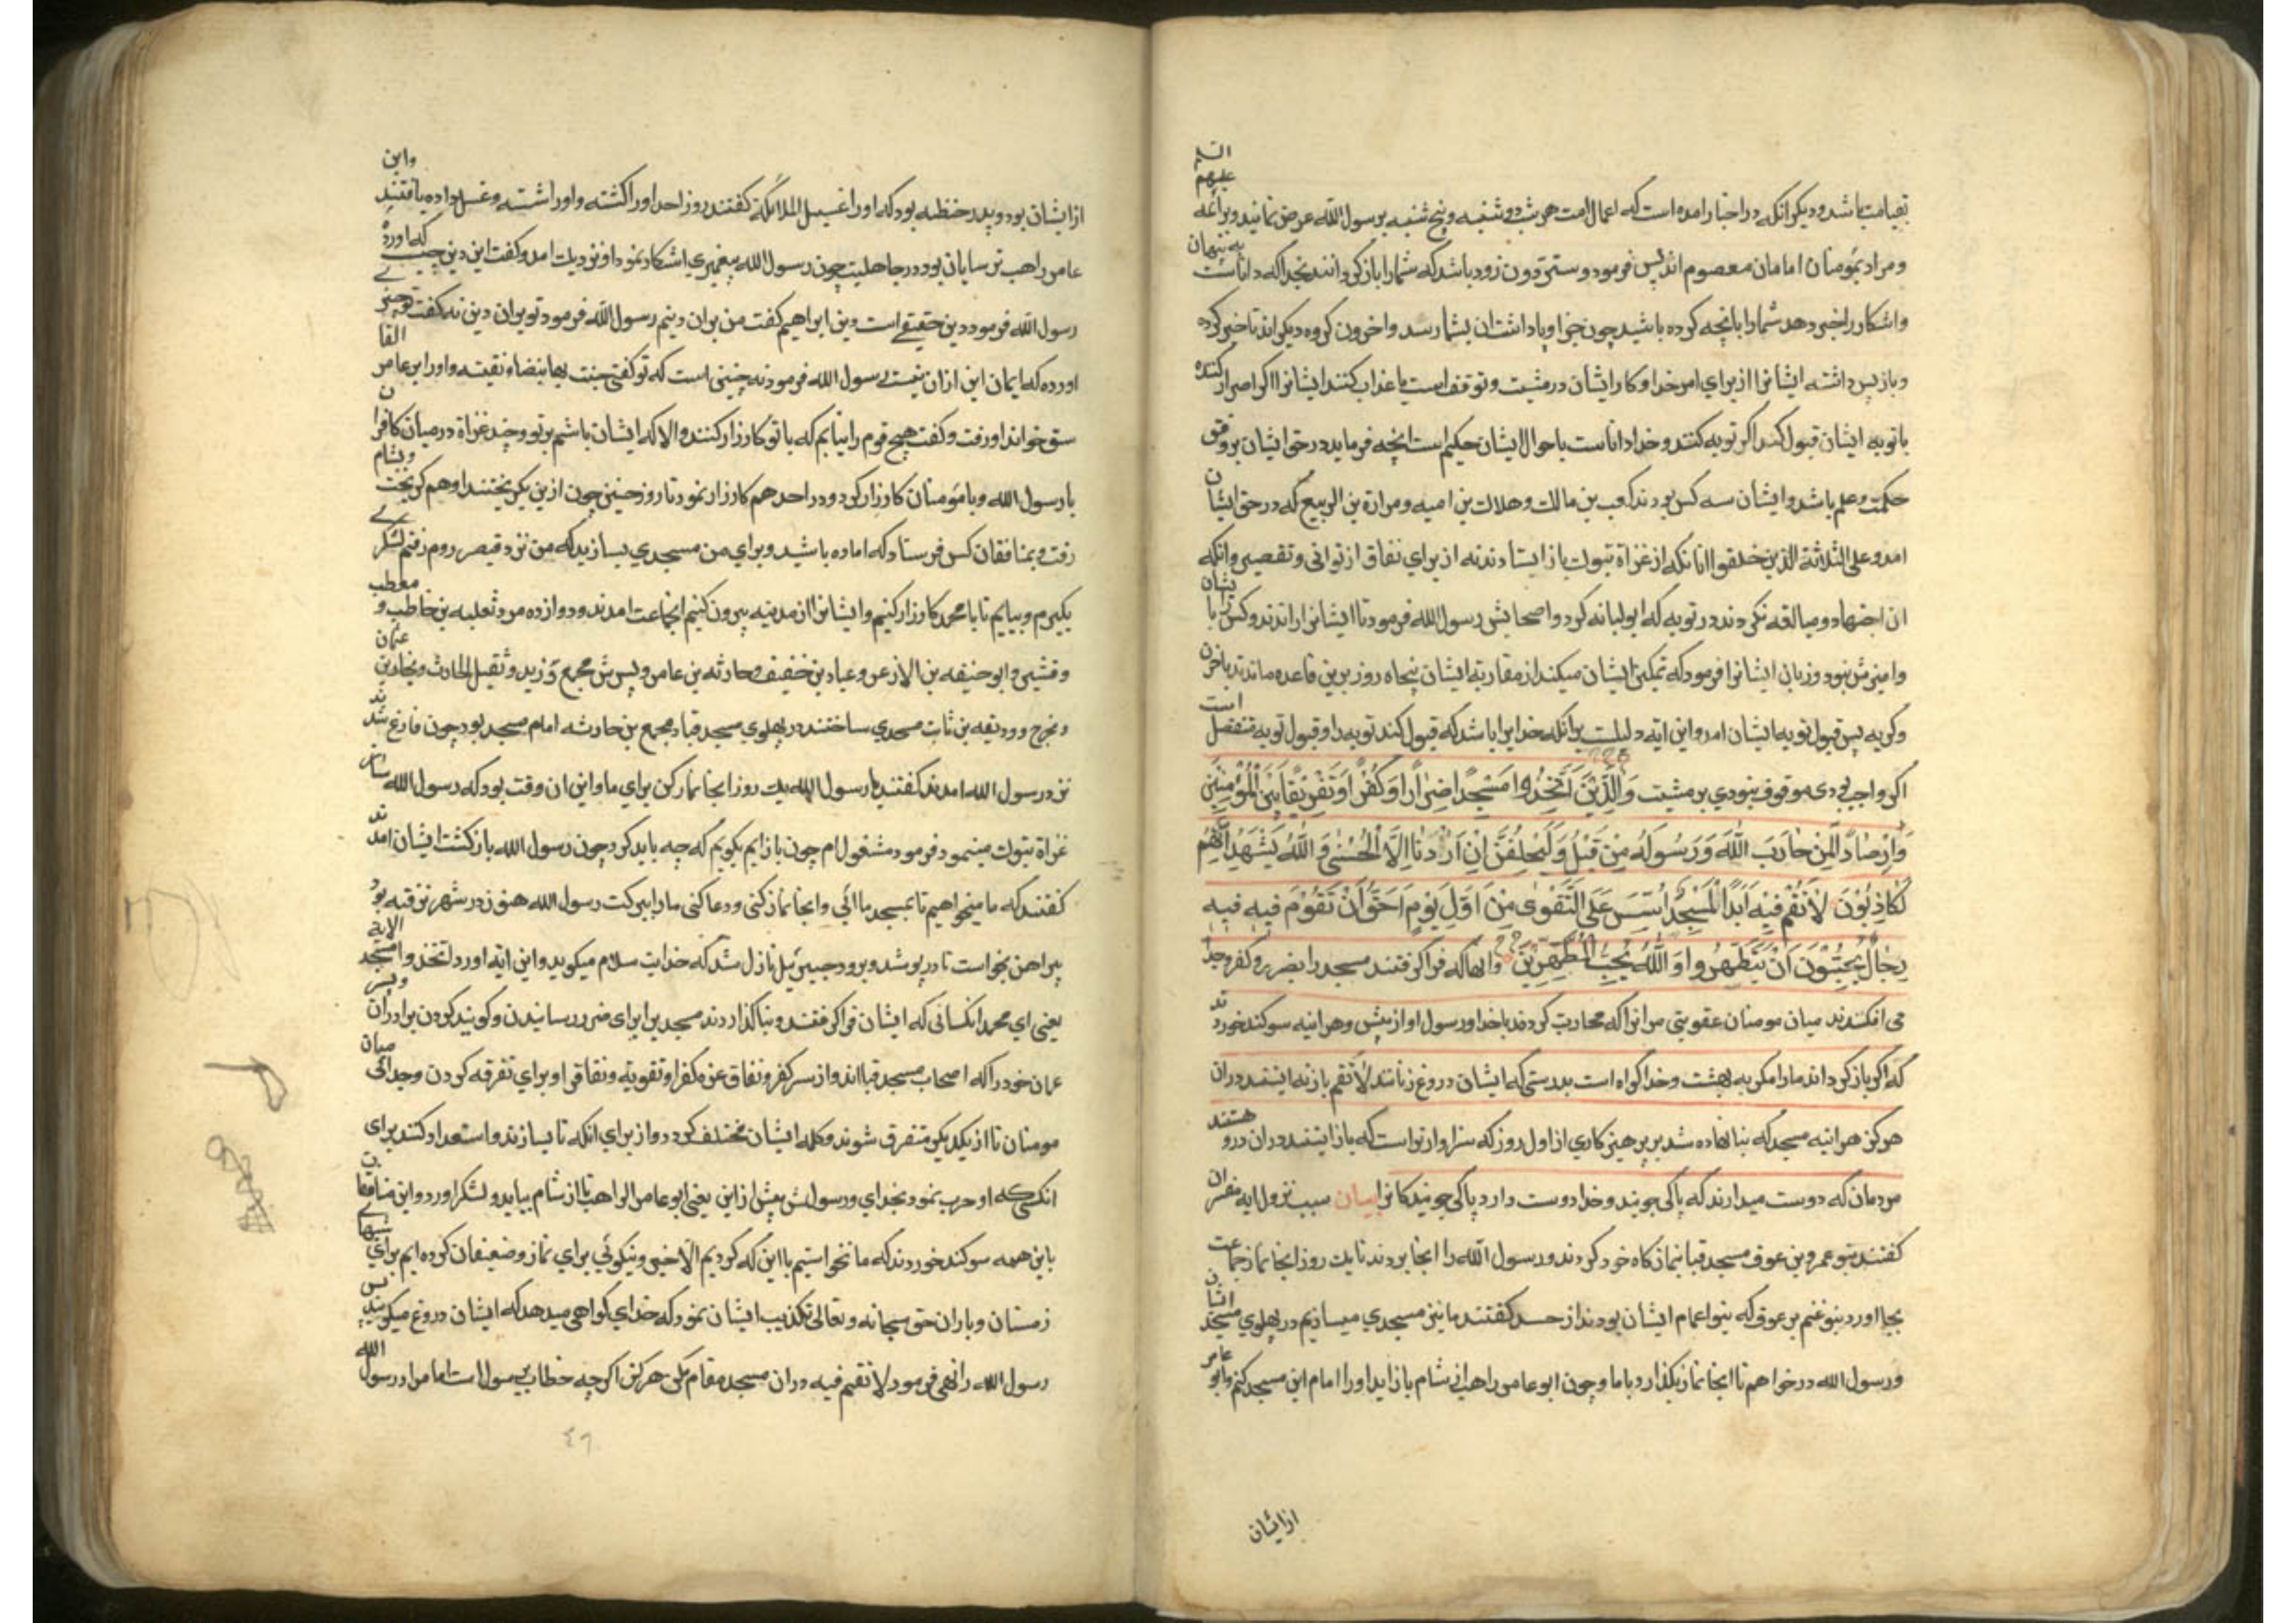 بقیامت باشد و دیکر انکه در اخبار امده است که اعمال امت هر شب دوشنبه و پنج شنبه بر رسول الله عرض نمایند و بر ائمه علیهم السلم
و مراد بمؤمنان امامان معصوم اند پس فرمود و ستردون زود باشد که شمارا باز کردانند بخدا که داناست به پنهان
و اشکارا و خبر دهد شمارا بانچه کرده باشید چون جزا و پاداشت ان بشما رسد و اخرون کروه دیکراند تاخیر کرده
و باز پس داشته ایشانرا از برای امر خدا و کار ایشان در مشیت و توقف است یا عذاب کند ایشانرا اکر اصرار کنند
یا توبه ایشان قبول کند اکر توبه کنند و خدا داناست باحوال ایشان حکیم است انچه فرماید در حق ایشان بر وفق
حکمت و علم باشد و ایشان سه کس بودند کعب بن مالک و هلال بن امیه و مرارة بن الربیع که در حق ایشان
امد و علی الثلاثة الذین خلفوا انانکه از غزاة تبوک باز ایستادند نه از برای نفاق از توانی و تقصیر و انکه
ان اجتهاد و مبالغه نکردند در توبه که ابولبابه کرد و اصحابش رسول الله فرمود تا ایشانرا راندند و کس با ایشان
وامیزش ننمود و زنان ایشانرا فرمود که تمکین ایشان میکند از مقاربة ایشان پنجاه روز برین قاعده ماندند باحزن
و کریه پس قبول توبه ایشان امد و این ایه دلیلست برانکه خدایرا باشد که قبول کند توبه را و قبول توبه تفضل است
اکر واجب بودی موقوف نبودی بر مشیت وَالَّذِیْنَ اتَّخَذُوا مَسْجِدًا ضِرَارًا وَكُفْرًا وَتَفْرِیْقًا بَیْنَ الْمُؤْمِنِیْنَ
وَاِرْصَادًا لِمَنْ حَارَبَ اللّٰهَ وَرَسُوْلَهُ مِنْ قَبْلُ وَلَیَحْلِفُنَّ اِنْ اَرَدْنَا اِلَّا الْحُسْنٰی وَاللّٰهُ یَشْهَدُ اِنَّهُمْ
لَكَاذِبُوْنَ لَا تَقُمْ فِیْهِ اَبَدًا لَمَسْجِدٌ اُسِّسَ عَلَی التَّقْوٰی مِنْ اَوَّلِ یَوْمٍ اَحَقُّ اَنْ تَقُوْمَ فِیْهِ فِیْهِ
رِجَالٌ یُحِبُّوْنَ اَنْ یَتَطَهَّرُوا وَاللّٰهُ یُحِبُّ الْمُطَّهِّرِیْنَ وانها که فرا کرفتند مسجد را بضرر و کفر وجدا
می افکندند میان مومنان عقوبتی مر انرا که محاربت کردند باخدا ورسول او از پیش وهر اینه سوکند خورند
که اکر باز کرداند مارا مکر به بهشت وخدا کواه است بدرستی که ایشان دروغ زنانند لا تقم باز نه ایستد دران
هرکز هر اینه مسجد که بنا نهاده شد بر پرهیز کاری از اول روز که سزاوارتر است که باز ایستند دران درو هستند
مردمان که دوست میدارند که پاکی جویند وخدا دوست دارد پاکی جویندکانرا بیان سبب نزول ایه مفسران
کفتند بنو عمرو بن عوف مسجد قبا بنماز کاه خود کردند ورسول الله را انجا بردند تا یک روز انجا نماز جماعت
بجا اورد بنو غنم بن عوف که بنو اعمام ایشان بودند از حسد کفتند ما نیز مسجدی میسازیم در پهلوی مسجد ایشان
ورسول الله درخواهیم تا انجا نماز بکذارد باما وچون ابو عامر راهب از شام باز اید اورا امام این مسجد کنیم وابو عامر
از ایشان
از ایشان بود و پدر حنظله بود که اورا غسیل الملائکة کفتند روز احد اورا کشته و اورا شسته و غسل داده یافتند واین
عامر راهب ترسایان بود در جاهلیت چون رسول الله پیغمبری اشکار نمود او نزدیک امد و کفت این دین چیست که اورده
رسول الله فرمود دین حنیفی است دین ابراهیم کفت من بران دینم رسول الله فرمود تو بران دین نه کفت تو چیزی
اورده که ایمان این ازان نیست رسول الله فرمود نه چنین است که تو کفتی جئت بها بیضاء نقیة و اورا ابو عامر الفا
سق خواند او رفت و کفت هیچ قوم را نیابم که با تو کارزار کنند والا که ایشان باشم بر تو و چند غزاة درمیان کافران
با رسول الله و با مؤمنان کارزار کرد و در احد هم کارزار نمود تا روز حنین چون ازین بکریختند او هم کریخت وبشام
رفت و بمنافقان کس فرستاد که اماده باشید و برای من مسجدی بسازید که من نزد قیصر روم رفتم لشکری
بکیرم و بیایم تا با محمد کارزار کنیم و ایشانرا از مدینه بیرون کنیم انجماعت امدند و دوازده مرد ثعلبه بن حاطب و معطب
و قشیر و ابو حنیفه بن الازعر و عباد بن حنیف و حارثه بن عامر و پسرش مجمع و زید و نفیل الحارث و بجاد بن عثمان
و بخرج و ودیعه بن ثابت مسجدی ساختند در پهلوی مسجد قبا و مجمع بن حارثه امام مسجد بود چون فارغ شدند
نزد رسول الله امدند کفتند یا رسول الله یک روز انجا نماز کن برای ما و این ان وقت بود که رسول الله ساز
غزاة تبوک مینمود فرمود مشغول ام چون باز ایم بکویم که چه باید کرد چون رسول الله باز کشت ایشان امدند
کفتند که ما میخواهیم تا بمسجد ما ائی و انجا نماز کنی و دعا کنی مارا ببرکت رسول الله هنوز در شهر نرفته بود
پیراهن بخواست تا در پوشد و برود جبرئیل نازل شد که خدایت سلام میکوید و این ایه اورد اتخذوا مسجد الایة
یعنی ای محمد انکسانی که ایشان فرا کرفتند و بنا کذاردند مسجد یرا برای ضرر رسانیدن و کویند کردن برادران وپسر
عمان خود را که اصحاب مسجد قبا اند و از سر کفر و نفاق عزم کفر او تقویة و نفاقی او برای تفرقه کردن وجدائی میان
مومنان تا از یکدیکر متفرق شوند و کلمه ایشان مختلف کردد و از برای انکه تا بسازند و استعداد کنند برای
انکسی که او حرب نمود بخدای و رسولش پیش از این یعنی ابو عامر الراهب تا از شام بیاید و لشکر اورد واین منافقان
با این همه سوکند خوردند که ما نخواستیم باین که کردیم الا خیر و نیکوئی برای نماز و ضعیفان کرده ایم برای شبهای
زمستان وباران حق سبحانه و تعالی تکذیب ایشان نمود که خدای کواهی میدهد که ایشان دروغ میکویند پس
رسول الله را نهی فرمود لا تقم فیه دران مسجد مقام مکن هرکز اکر چه خطاب برسول است اما مراد رسول الله
٤٦